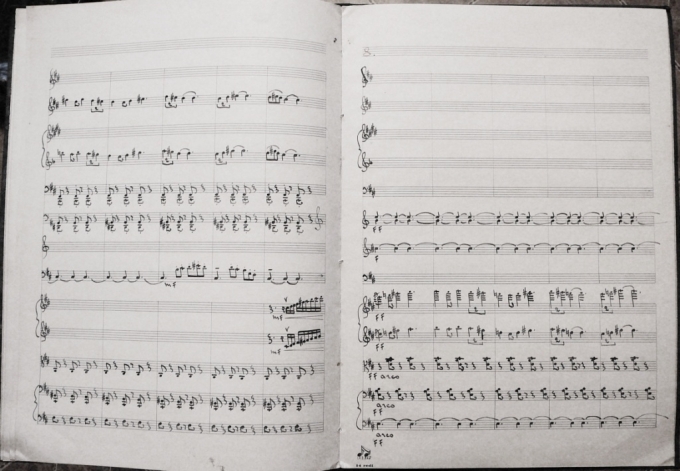 8.
ff
f
mf
mf
mf
ff
ff
ff arco
ff
arco
arco
ff